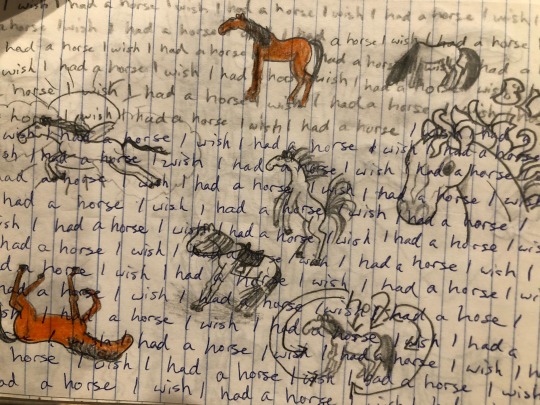 I wish I had a horse I wish I had a horse I wish I
I wish I had a horse I wish I had a horse
had a horse I wish I had a horse I wish I had a horse
wish I had a horse I wish I had a horse I wish I
horse I wish I had a horse I wish I had a horse
horse I wish I had a horse I wish I had a horse I wish I had
wish I had a horse I wish I had a horse I wish I had a horse
wish I had a horse I wish I had a horse I wish I had a horse
had a horse I wish I had a horse I wish I had a horse
had a horse I wish I had a horse I wish I had a horse I
wish I had a horse I wish I had a horse I wish I had a horse I
had a horse I wish I had a horse I wish I had a horse I wish I
had a horse I wish I had a horse I wish I had a horse I
had a horse I wish I had a horse I wish I had a hose I
I wish I had a horse I wish I had a horse I wish I had a
had a horse I wish I had a horse I wish I had a horse I wish
horse I wish I had a horse I wish I had a horse I
had a horse I wish I had a horse I wish I had a horse I